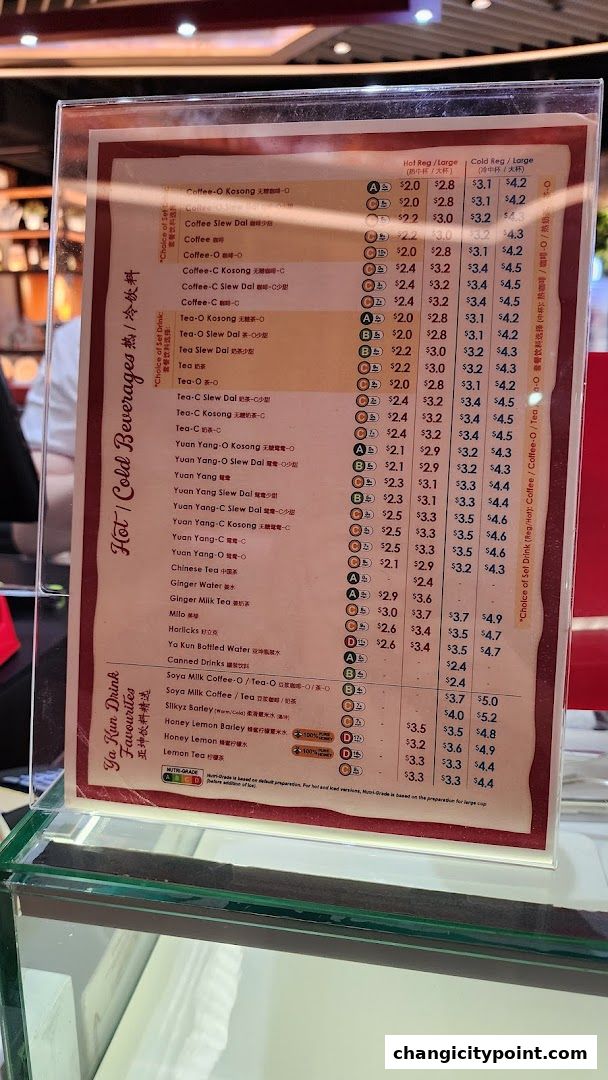 Hot Reg /Large
(热中杯 / 大杯)
Cold Reg / Large
(冷中杯 / 大杯)
Hot / Cold Beverages 热 / 冷饮料
*Choice of Set Drink:
套餐饮料选择:
Coffee-O Kosong 无糖咖啡-O A $2.0 $2.8 $3.1 $4.2
C $2.0 $2.8 $3.1 $4.2
Coffee Siew Dai 咖啡少甜 C $2.2 $3.0 $3.2 $4.3
Coffee 咖啡 C $2.2 $3.0 $3.2 $4.3
Coffee-O 咖啡-O C $2.0 $2.8 $3.1 $4.2
Coffee-C Kosong 无糖咖啡-C C $2.4 $3.2 $3.4 $4.5
Coffee-C Siew Dai 咖啡-C少甜 C $2.4 $3.2 $3.4 $4.5
Coffee-C 咖啡-C C $2.4 $3.2 $3.4 $4.5
*Choice of Set Drink:
套餐饮料选择:
Tea-O Kosong 无糖茶-O A $2.0 $2.8 $3.1 $4.2
Tea-O Siew Dai 茶-O少甜 B $2.0 $2.8 $3.1 $4.2
Tea Siew Dai 奶茶少甜 B $2.2 $3.0 $3.2 $4.3
Tea 奶茶 C $2.2 $3.0 $3.2 $4.3
Tea-O 茶-O C $2.0 $2.8 $3.1 $4.2
Tea-C Siew Dai 奶茶-C少甜 C $2.4 $3.2 $3.4 $4.5
Tea-C Kosong 无糖奶茶-C C $2.4 $3.2 $3.4 $4.5
Tea-C 奶茶-C C $2.4 $3.2 $3.4 $4.5
Yuan Yang-O Kosong 无糖鸳鸯-O A $2.1 $2.9 $3.2 $4.3
Yuan Yang-O Siew Dai 鸳鸯-O少甜 B $2.1 $2.9 $3.2 $4.3
Yuan Yang 鸳鸯 C $2.3 $3.1 $3.3 $4.4
Yuan Yang Siew Dai 鸳鸯少甜 B $2.3 $3.1 $3.3 $4.4
Yuan Yang-C Siew Dai 鸳鸯-C少甜 C $2.5 $3.3 $3.5 $4.6
Yuan Yang-C Kosong 无糖鸳鸯-C C $2.5 $3.3 $3.5 $4.6
Yuan Yang-C 鸳鸯-C C $2.5 $3.3 $3.5 $4.6
Yuan Yang-O 鸳鸯-O C $2.1 $2.9 $3.2 $4.3
Chinese Tea 中国茶 A - $2.4 - -
Ginger Water 姜水 A $2.9 $3.6 - -
Ginger Milk Tea 姜奶茶 C $3.0 $3.7 $3.7 $4.9
Milo 美禄 C $2.6 $3.4 $3.5 $4.7
Horlicks 好立克 D $2.6 $3.4 $3.5 $4.7
Ya Kun Bottled Water 亚坤瓶装水 A - - $2.4 -
Canned Drinks 罐装饮料 B - - $2.4 -
Ya Kun Drink Favourites
亚坤饮料精选
Soya Milk Coffee-O / Tea-O 豆浆咖啡-O / 茶-O B - - $3.7 $5.0
Soya Milk Coffee / Tea 豆浆咖啡 / 奶茶 C - - $4.0 $5.2
Silkyz Barley (Warm/Cold) 柔滑薏米水 (温/冷) C - $3.5 $3.5 $4.8
Honey Lemon Barley 蜂蜜柠檬薏米水 100% PURE HONEY D - $3.2 $3.6 $4.9
Honey Lemon 蜂蜜柠檬水 100% PURE HONEY D - $3.3 $3.3 $4.4
Lemon Tea 柠檬茶 C - $3.3 $3.3 $4.4
NUTRI-GRADE
A B C D
Nutri-Grade is based on default preparation. For hot and iced versions, Nutri-Grade is based on the preparation for large cup
(before addition of ice).
changicitypoint.com